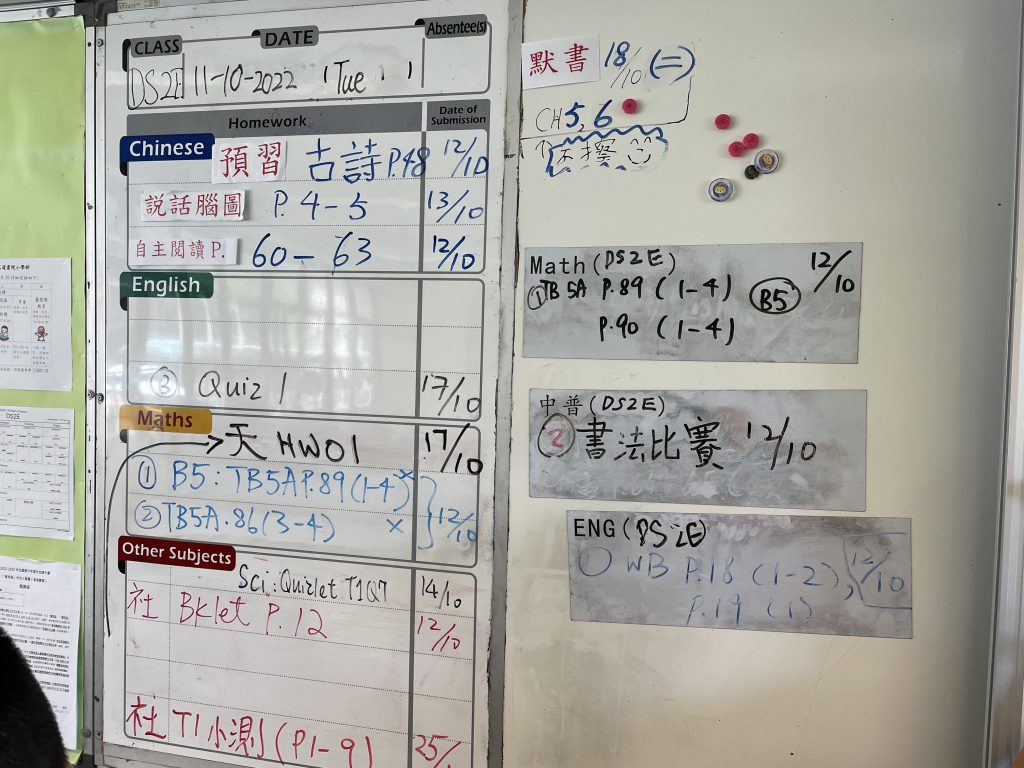 CLASS DATE Absentee(s)
DS2E 11-10-2022 (Tue.)
Homework Date of Submission
Chinese 預習 古詩 P.48 12/10
説話腦圖 P. 4-5 13/10
自主閱讀 P. 60-63 12/10
English
③ Quiz 1 17/10
Maths
天 HW01 17/10
① B5: TB5A P.89 (1-4) 12/10
② TB5A.86 (3-4)
Other Subjects
Sci: Quizlet T1Q7 14/10
社 Bklet P.12 12/10
社 T1 小測 (P1-9) 25/
默書 18/10 (二)
CH5, 6
Math (DS2E) 12/10
① TB 5A P.89 (1-4) B5
P.90 (1-4)
中普 (DS2E)
② 書法比賽 12/10
ENG (DS2E)
WB P.18 (1-2), 12/10
P.19 (1)
DS2E